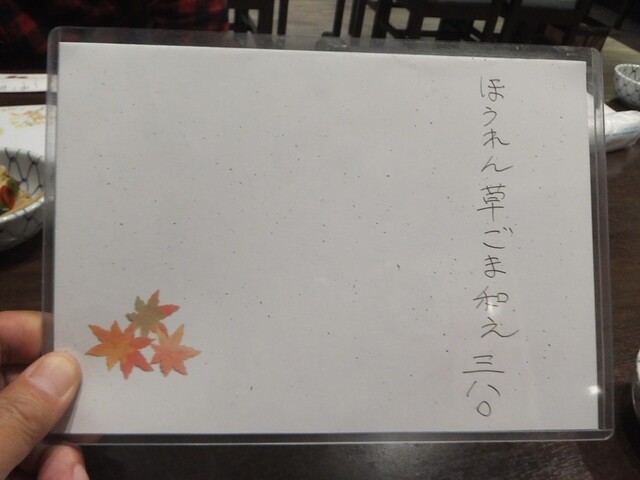 ほうれん草ごま和え 三八〇